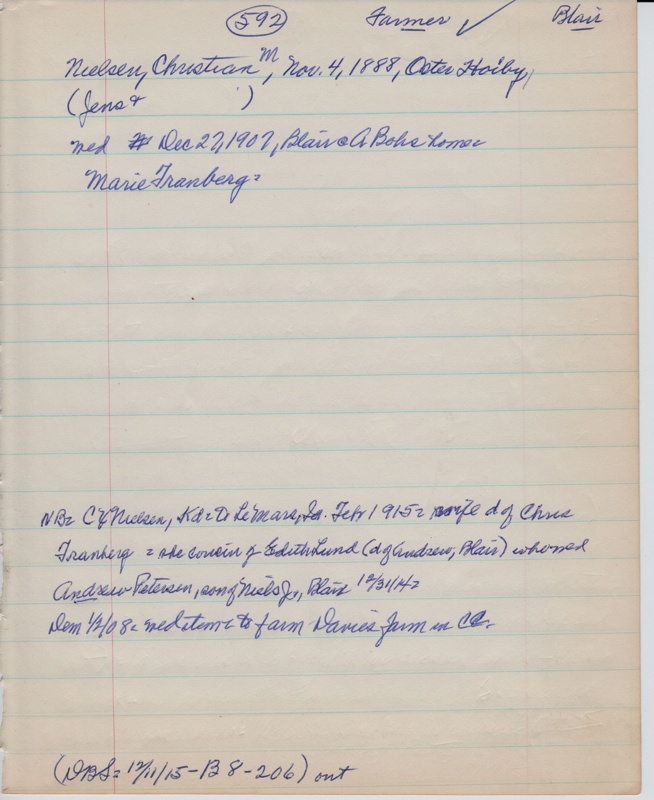 592 Farmer ✓ Blair
Nielsen, Christian M, Nov. 4, 1888, Oster Hoiby,
(Jens & )
wed Dec 27, 1907, Blair @ A Bohs home=
Marie Franberg=
NB= C Nielsen, Kd= to LeMars, Ia. Feb 1915= wife d of Chris
Franberg = she cousin of Edith Lund (d of Andrew, Blair) who wed
Andrew Petersen, son of Niels Jr, Blair 12/31/14=
Dem 1/2/08= wed item= to farm Davies farm in
(DBS= 12/11/15-B 8-206) out